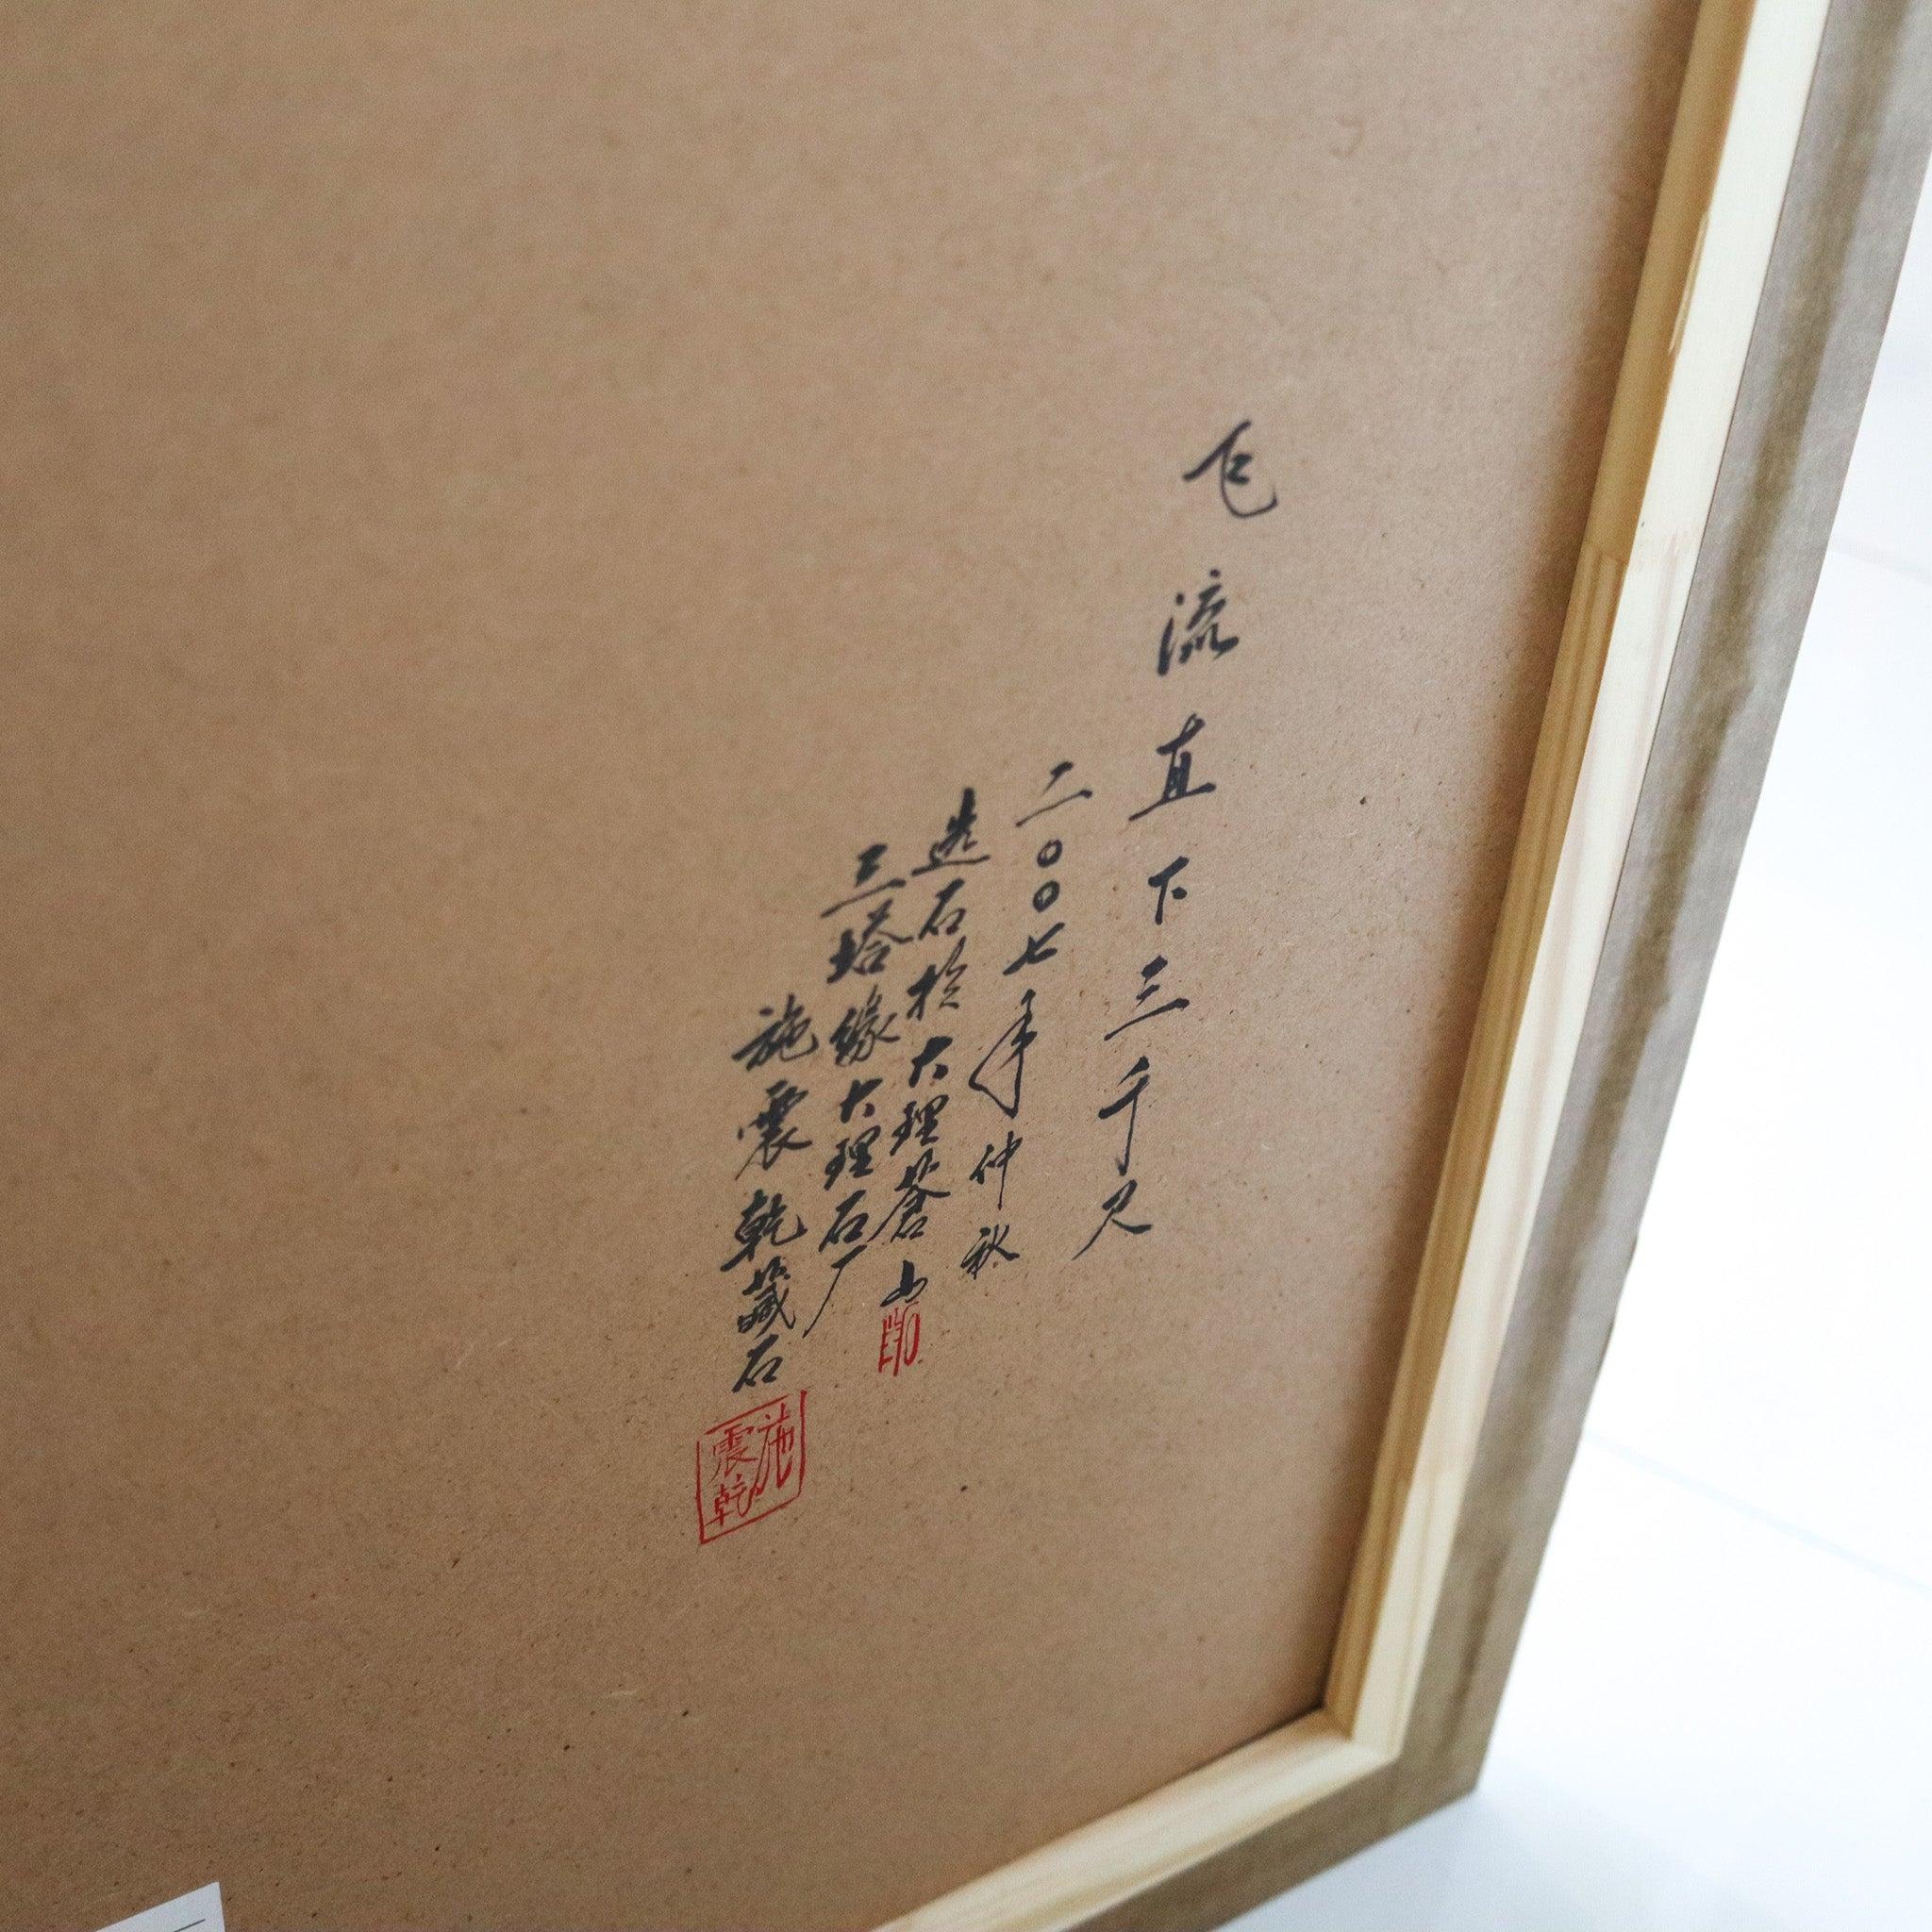 飞流直下三千尺
二〇〇七年仲秋
选石於大理蒼山
印
三塔缘大理石厂
施震乾藏石
施震乾